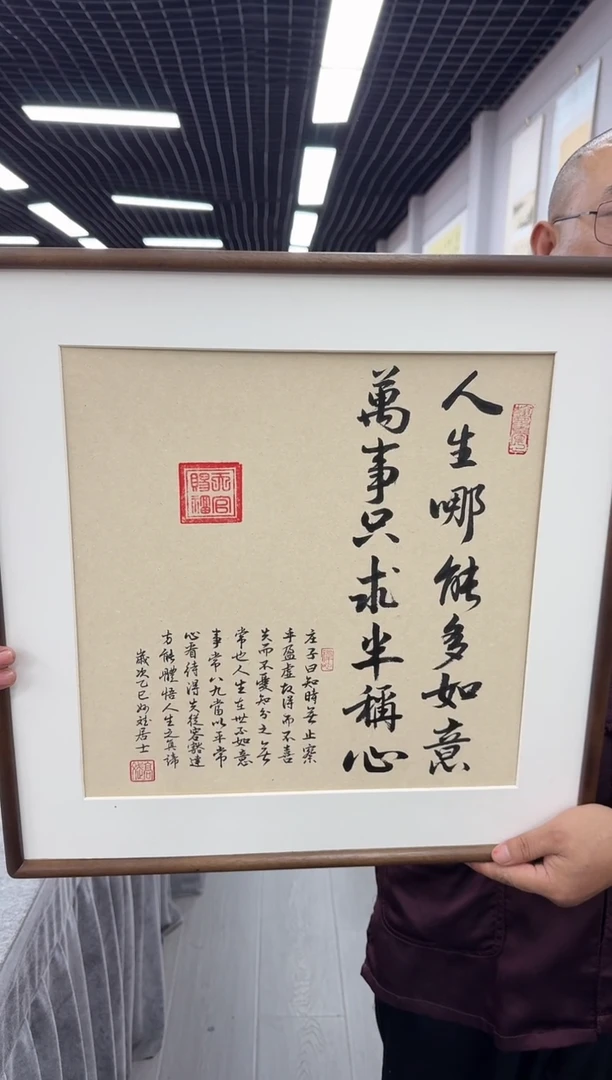 人生哪能多如意
萬事只求半稱心
庄子曰知時无止察
乎盈虚故得而不喜
失而不憂知分之無
常也人生在世不如意
事常八九當以平常
心看待得失從容豁達
方能體悟人生之真諦
歲次乙巳 居士
天官
賜福